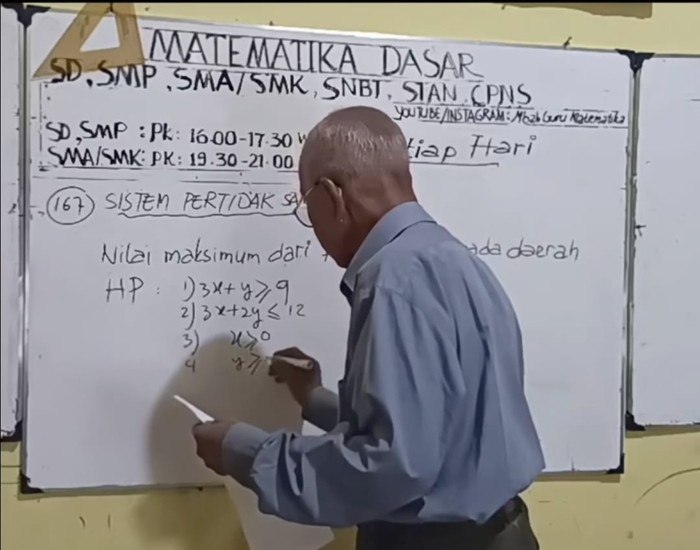 MATEMATIKA DASAR
SD, SMP, SMA/SMK, SNBT, STAN, CPNS
YOUTUBE/INSTAGRAM: Mbah Guru Matematika
SD, SMP : PK: 16.00-17.30
SMA/SMK: PK: 19.30-21.00 tiap Hari
167 SISTEM PERTIDAK
Nilai maksimum dari daerah
HP : 1) 3x+y ≥ 9
2) 3x+2y ≤ 12
3) x ≥ 0
4 y ≥